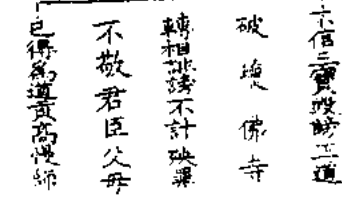 不信三寶毀謗正道
破壞佛寺
轉相誹謗不計殃罪
不敬君臣父母
已得為道貢高慢師